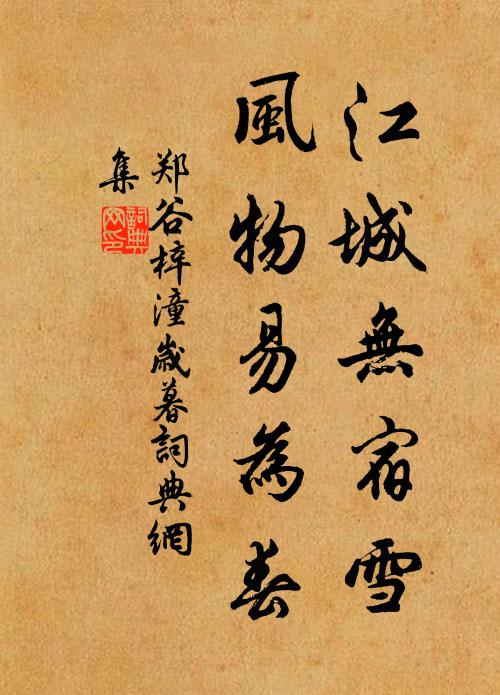 江城無宿雪
風物易為春
郑谷梓潼歲暮詞典網
集
詞典
網印